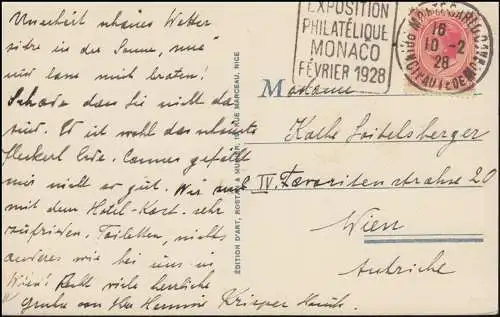 Unerhört schönes Wetter
sitze in der Sonne, und
und lass mich braten!
Schade dass Sie nicht da
sind. Es ist wohl das schönste
Fleckerl Erde. Cannes gefällt
mir nicht so gut. Wir sind
mit dem Hotel-Kost. sehr
zufrieden. Toiletten, nichts
anderes wie bei uns in
Wien! Recht viele herzliche
Grüße von Ihrer Hermine Krisper
ÉDITION D'ART, ROSTAN & MUNIER, RUE MARCEAU, NICE
EXPOSITION
PHILATÉLIQUE
MONACO
FÉVRIER 1928
MONTE-CARLO
16
10 -2
28
PRINCIPAUTÉ DE MONACO
Madame
Käthe Loitelsberger
IV. Favoritenstrahse 20
Wien
Autriche